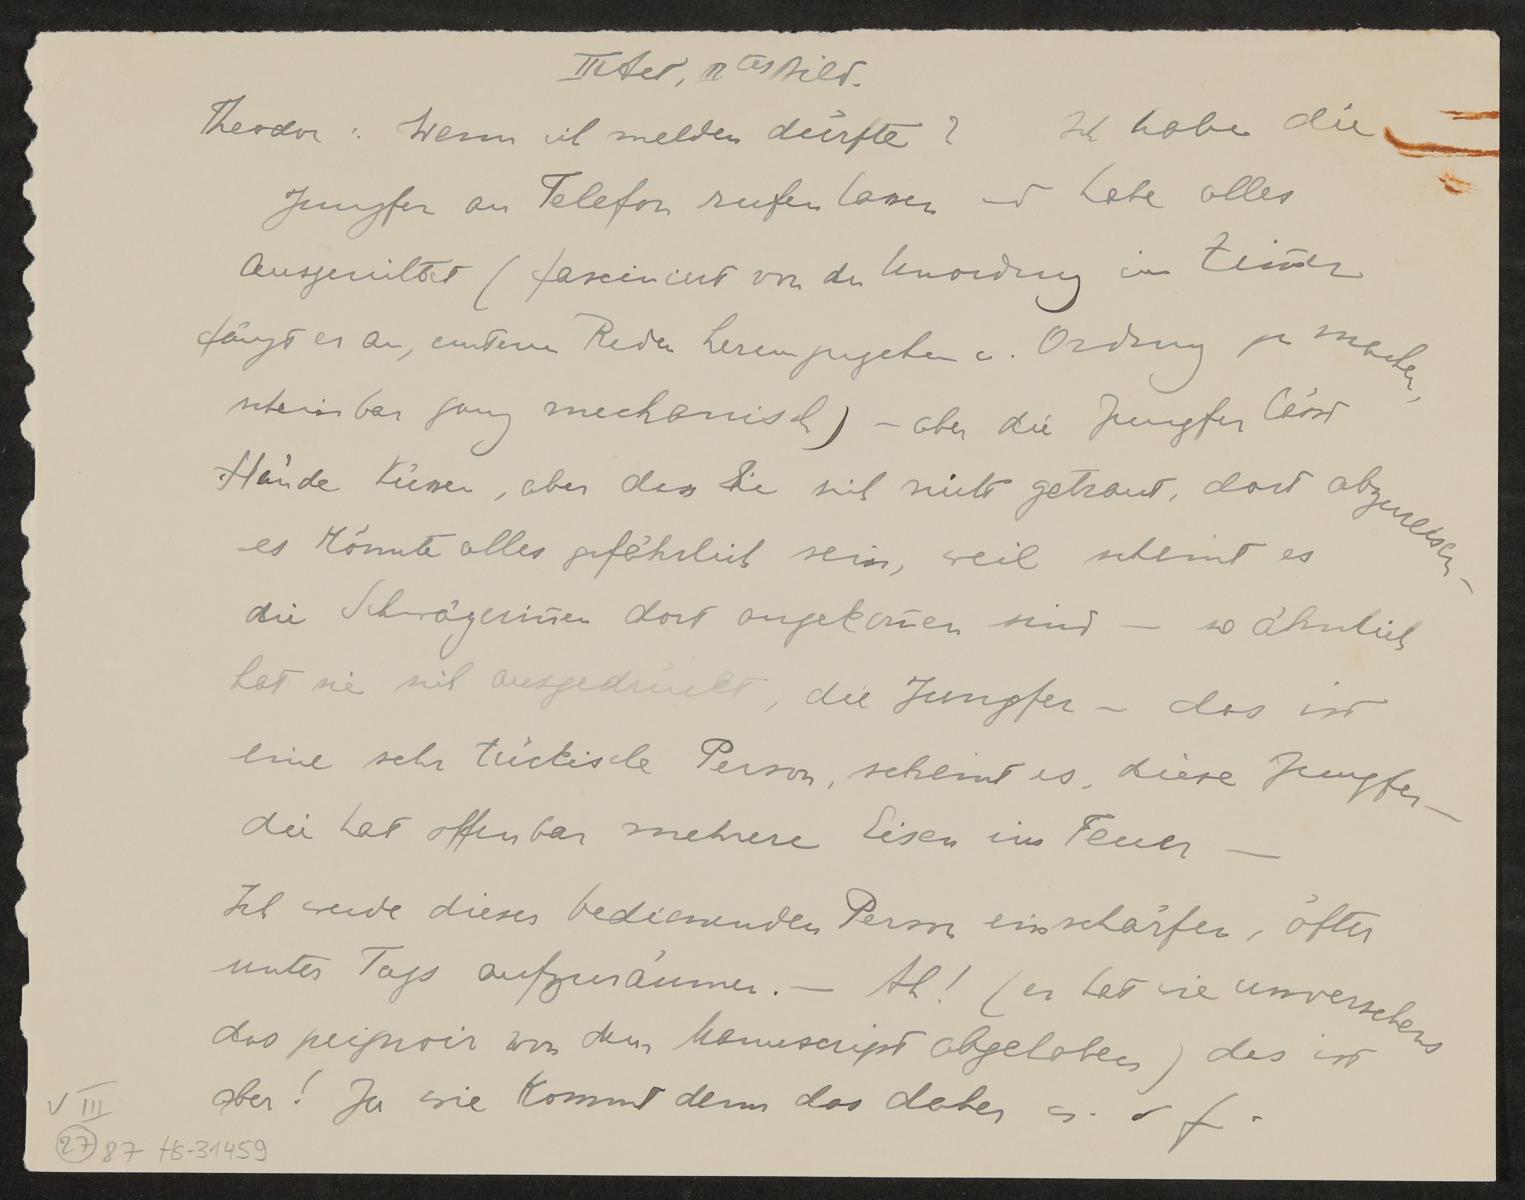 III Act, II tes Bild.
Theodor: Wenn ich melden dürfte? Ich habe die
Jungfer an Telefon rufen lassen und habe alles
ausgerichtet (fasciniert von der Unordnung im Zim̄er
fängt er an, unterm Reden herumzugehen u. Ordnung zu machen,
scheinbar ganz mechanisch) – aber die Jungfer lässt
Hände küssen, aber dass Sie sich nicht getraut, dort abzureisen –
es könnte alles gefährlich sein, weil scheint es
die Schwägerin̄en dort angekom̄en sind – so ähnlich
hat sie sich ausgedrückt, die Jungfer – das ist
eine sehr tückische Person, scheint es, diese Jungfer –
die hat offenbar mehrere Eisen im Feuer –
Ich werde dieser bedienenden Person einschärfen, öfter
unter Tags aufzuräumen. – Ah! (er hat wie unversehens
das peignoir von dem Manuscript abgehoben) das ist
aber! Ja wie kommt denn das daher u. s f.
V III
27 87 HS-31459